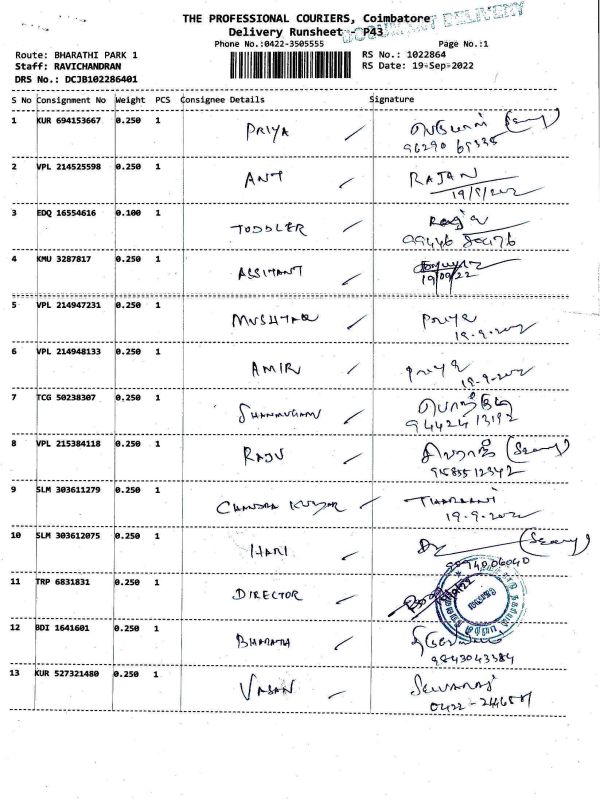 THE PROFESSIONAL COURIERS, Coimbatore
DOCUMENT DELIVERY
Delivery Runsheet - P43
Phone No.:0422-3505555
Page No.:1
Route: BHARATHI PARK 1
RS No.: 1022864
Staff: RAVICHANDRAN
RS Date: 19-Sep-2022
DRS No.: DCJB102286401
S No Consignment No Weight PCS Consignee Details Signature
1 KUR 694153667 0.250 1 PRIYA
2 VPL 214525598 0.250 1 ANT RAJAN
3 EDQ 16554616 0.100 1 TODDLER
4 KMU 3287817 0.250 1 ASSITANT
19/09/22
5 VPL 214947231 0.250 1 MUSHTAQ Priya
19-9-2022
6 VPL 214948133 0.250 1 AMIR Priya
19-9-2022
7 TCG 50238307 0.250 1 SHANMUGAM
94424 13192
8 VPL 215384118 0.250 1 RAJU
9 SLM 303611279 0.250 1 CHANDRA KUMAR THARAANI
19-9-2022
10 SLM 303612075 0.250 1 HARI
11 TRP 6831831 0.250 1 DIRECTOR
12 BDI 1641601 0.250 1 BHARATH
9843043384
13 KUR 527321480 0.250 1 VASAN Selvaraj